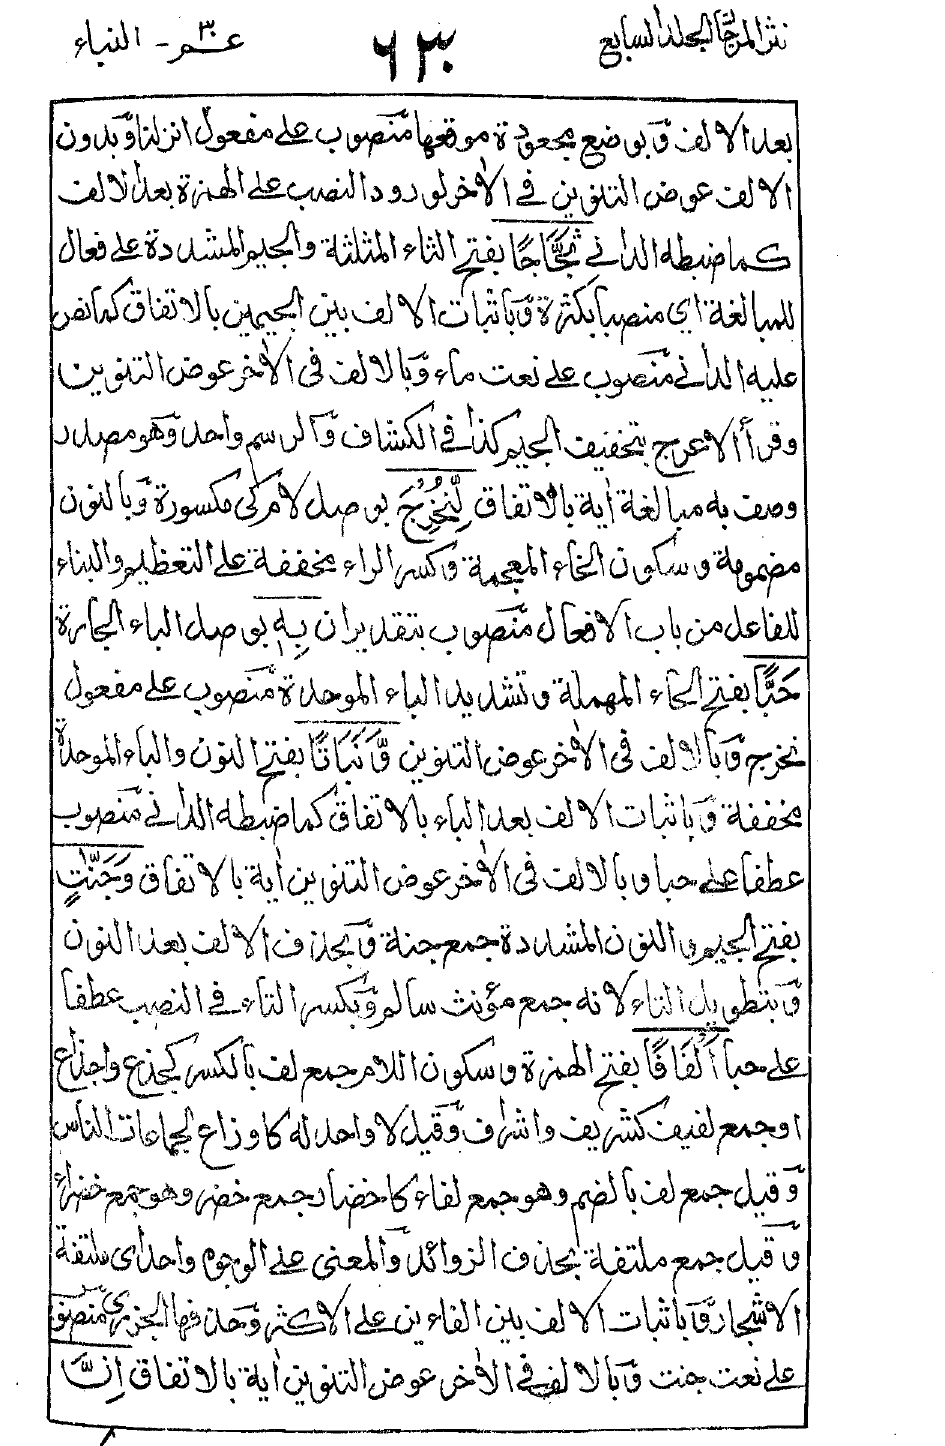 نثر المرجان المجلد السابع
٦٣٠
عم ٣٠ - النباء
بعد الالف وبوضع مجعودة موقعها منصوب على مفعول انزلنا وبدون
الالف عوض التنوين في الاخر لورود النصب على الهمزة بعد الالف
كما ضبطه الداني ثَجَّاجًا بفتح الثاء المثلثة والجيم المشددة على فعال
للمبالغة اي منصبا بكثرة وباثبات الالف بين الجيمين بالاتفاق كما نص
عليه الداني منصوب على نعت ماء وبالالف في الاخر عوض التنوين
وقرأ الاعرج بتخفيف الجيم كذا في الكشاف والرسم واحد وهو مصدر
وصف به مبالغة اية بالاتفاق لِّنُخْرِجَ بوصل لام كي مكسورة وبالنون
مضمومة وسكون الخاء المعجمة وكسر الراء مخففة على التعظيم والبناء
للفاعل من باب الافعال منصوب بتقدير ان بِهٖ بوصل الباء الجارة
حَبًّا بفتح الحاء المهملة وتشديد الباء الموحدة منصوب على مفعول
نخرج وبالالف في الاخر عوض التنوين وَّنَبَاتًا بفتح النون والباء الموحدة
مخففة وباثبات الالف بعد الباء بالاتفاق كما ضبطه الداني منصوب
عطفا على حبا وبالالف في الاخر عوض التنوين اية بالاتفاق وَجَنّٰتٍ
بفتح الجيم والنون المشددة جمع جنة وبحذف الالف بعد النون
وبتطويل التاء لانه جمع مؤنث سالم وبكسر التاء في النصب عطفا
على حبا اَلْفَافًا بفتح الهمزة وسكون اللام جمع لف بالكسر كجذع واجذاع
او جمع لفيف كشريف واشراف وقيل لا واحد له كاوزاع لجماعات الناس
وقيل جمع لف بالضم وهو جمع لفاء كاخضار جمع خضر وهو جمع خضراء
وقيل جمع ملتفة بحذف الزوائد والمعنى على الوجوه واحد اي ملتفة
الاشجار وباثبات الالف بين الفاءين على الاكثر وحذفها الجزري منصوب
على نعت جنت وبالالف في الاخر عوض التنوين اية بالاتفاق اِنَّ